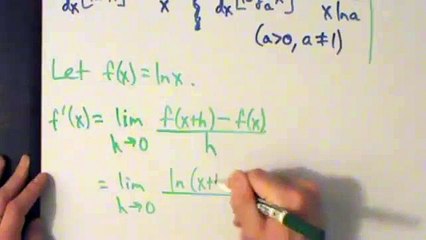 d/dx [ x { d/dx [log_a x] x ln a
(a>0, a≠1)
Let f(x) = ln x.
f'(x) = lim h→0 f(x+h) − f(x) / h
= lim h→0 ln(x+